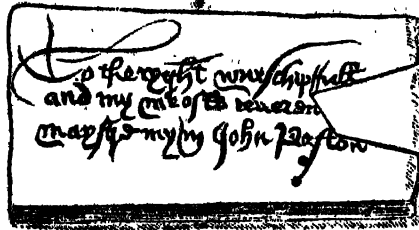 To the ryght wurschipffull
and my moste reveren
mayster my John Paston